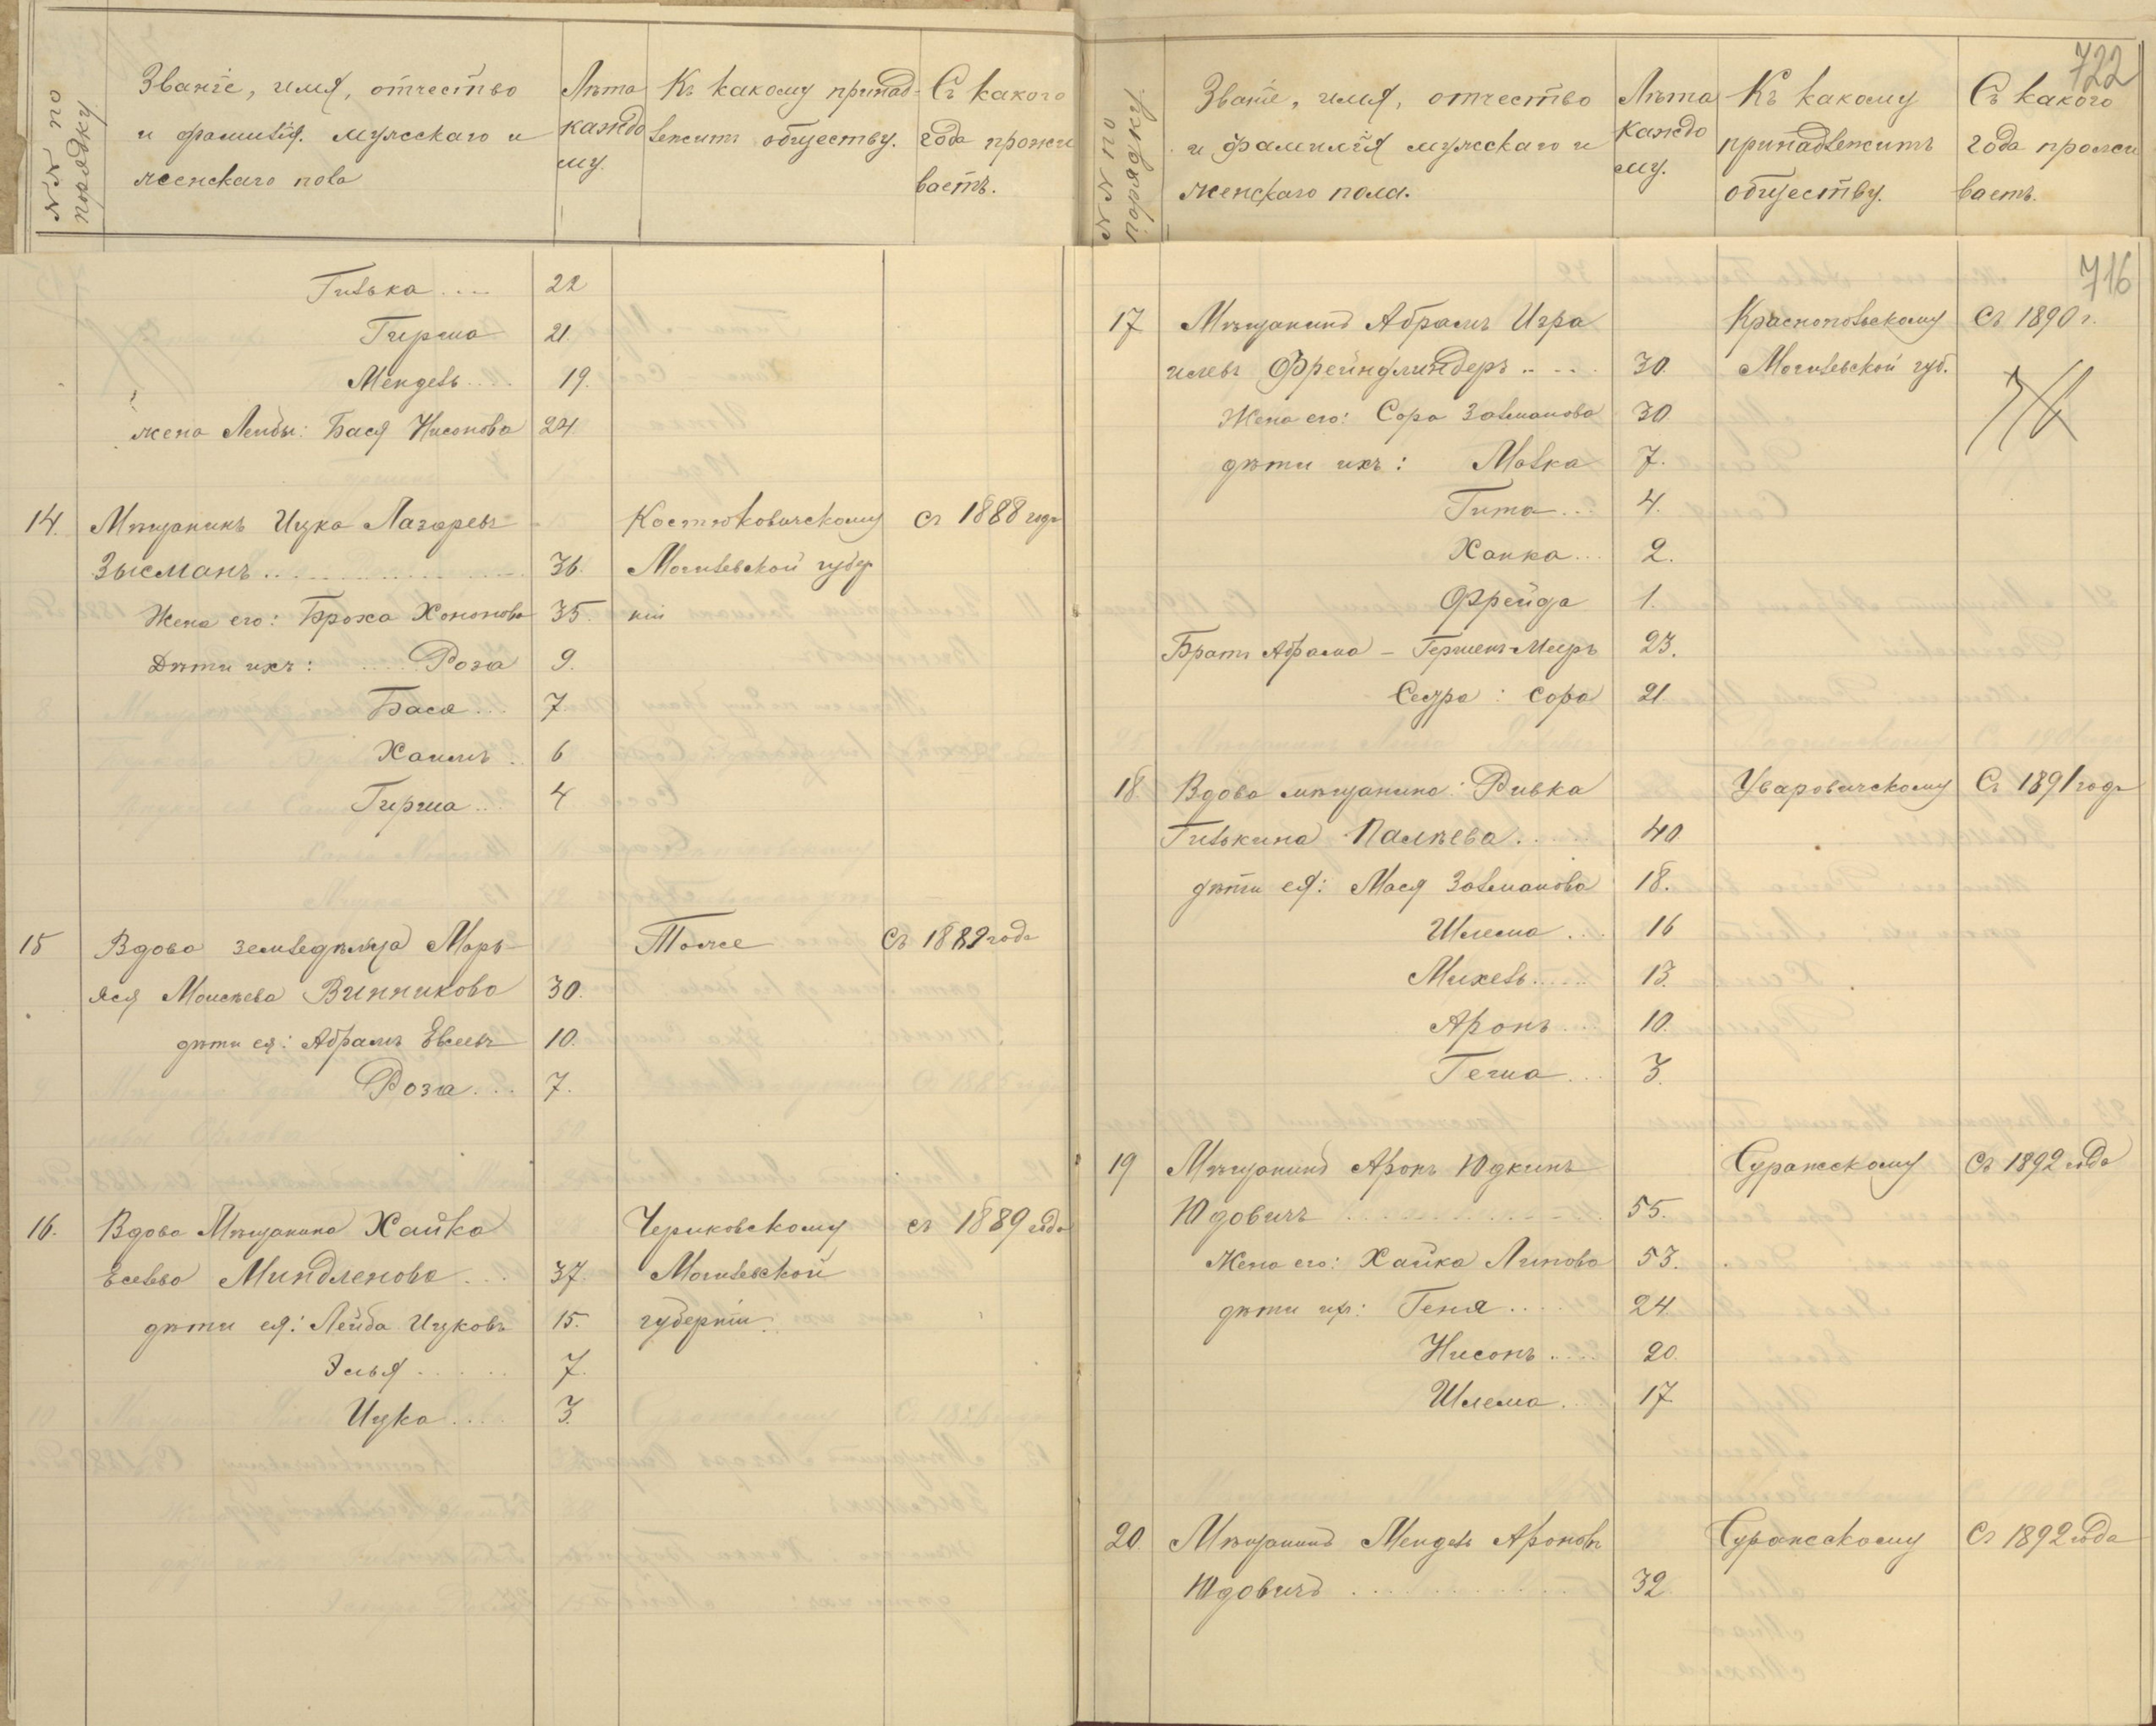 №№ по порядку
Званіе, имя, отчество
и фамилія мужескаго и
женскаго пола
Лѣта
каждо
му.
Къ какому принад-
лежитъ обществу.
Съ какого
года прожи
ваетъ.
Гилька .... 22
Гирша 21.
Мендель .... 19.
жена Лейбы: Бася Нисонова 24
14. Мѣщанинъ Ицка Лазаревъ Костюковичскому съ 1888 года
Зысманъ .... 36. Могилевской губер
Жена его: Броха Хононова 35. ніи
Дѣти ихъ: .... Роза 9.
Бася ... 7.
Хаимъ . 6
Гирша ... 4
15 Вдова земледѣльца Марь- Тоже Съ 1889 года
яся Моисѣева Винникова 30.
дѣти ея: Абрамъ Евсеевъ 10.
Роза ... 7.
16. Вдова Мѣщанина Хайка Чериковскому съ 1889 года
Еселева Миндленова ... 37. Могилевской
дѣти ея: Лейба Ицковъ 15. губерніи.
Элья ..... 7.
Ицка .... 3.
722
№№ по порядку.
Званіе, имя, отчество
и фамилія мужескаго и
женскаго пола.
Лѣта
каждо
му.
Къ какому
принадлежитъ
обществу.
Съ какого
года прожи
ваетъ.
716
17 Мѣщанинъ Абрамъ Изра Краснопольскому Съ 1890 г.
илевъ Фрейндлиндеръ .... 30. Могилевской губ.
Жена его: Сора Залманова 30
дѣти ихъ: Малка 7.
Гита ... 4.
Ханка ... 2.
Фрейда 1.
Братъ Абрама – Гершенъ-Мееръ 23.
Сестра: Сора 21
18. Вдова мѣщанина: Ривка Уваровичскому Съ 1891 года
Гилькина Палѣева ..... 40
дѣти ея: Мася Залманова 18.
Шлема ... 16
Михель ..... 13.
Аронъ ... 10.
Геша ... 3.
19 Мѣщанинъ Аронъ Юдкинъ Суражскому Съ 1892 года
Юдовичъ .... 55.
Жена его: Хайка Липова 53.
дѣти ихъ: Геня .... 24.
Нисонъ .... 20.
Шлема ... 17
20. Мѣщанинъ Мендель Ароновъ Суражскому Съ 1892 года
Юдовичъ ........... 32